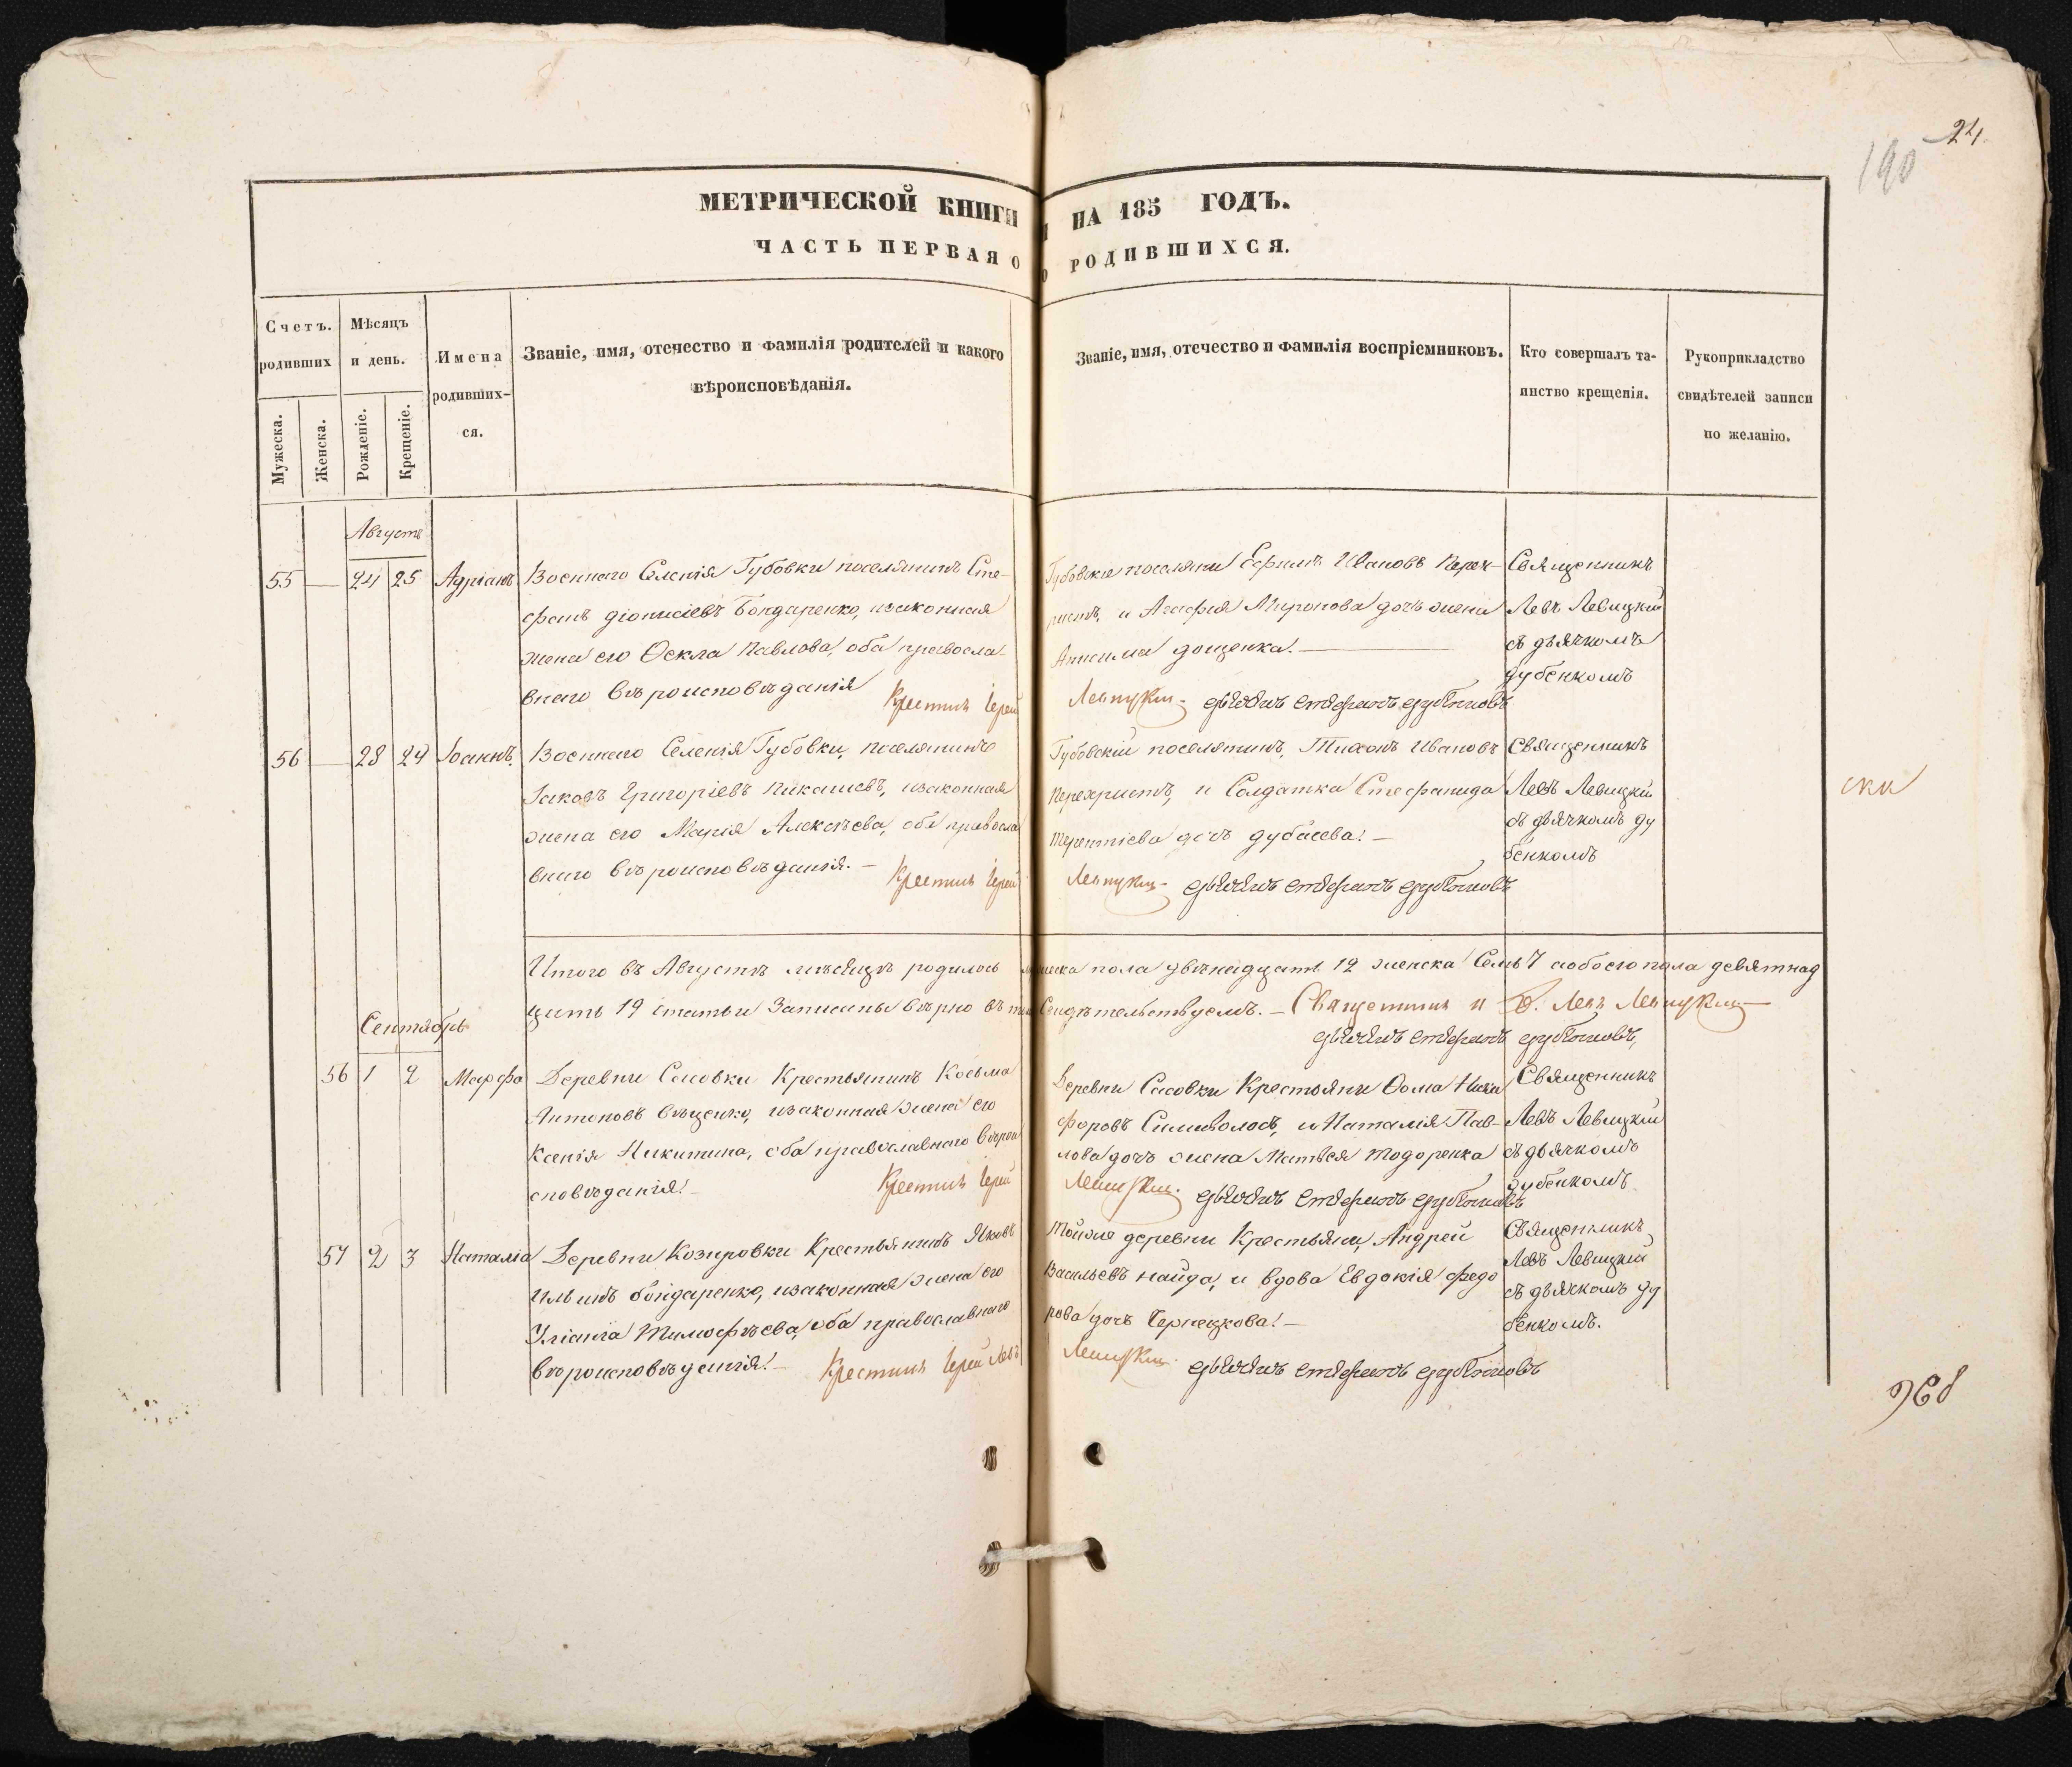 24
190
МЕТРИЧЕСКОЙ КНИГИ НА 185 ГОДЪ.
ЧАСТЬ ПЕРВАЯ О РОДИВШИХСЯ.
Счетъ родивших
Мужеска.
Женска.
Мѣсяцъ и день.
Рожденіе.
Крещеніе.
Имена родившихся.
Званіе, имя, отечество и фамилія родителей и какого вѣроисповѣданія.
Званіе, имя, отечество и фамилія воспріемниковъ.
Кто совершалъ таинство крещенія.
Рукоприкладство свидѣтелей записи по желанію.
Августъ
55 — 24 25 Адріанъ
Военнаго Селенія Губовки поселянинъ Сте-
фанъ Діонисіевъ Бондаренко, изаконная
жена его Ѳекла Павлова, оба правосла-
внаго вѣроисповѣданія
Крестилъ Іерей Левицкій
Губовскіе поселяни Ефимъ Ивановъ Перех-
ристъ, и Агафія Миронова дочь жена
Анисима Доценка. —
дьячокъ Стефанъ Дубенковъ
Священникъ
Левъ Левицкій
съ дьячкомъ
дубенкомъ
56 — 28 29 Іоаннъ.
Военнаго Селенія Губовки, поселянинъ
Іаковъ Григоріевъ изаконная
жена его Марія Алексѣева, оба правосла
внаго вѣроисповѣданія. —
Крестилъ Іерей Левицкій
Губовскій поселянинъ, Тихонъ Ивановъ
Перехристъ, и Солдатка Стефанида
Терентіева дочь дубасева. —
дьячокъ Стефанъ Дубенковъ
Священникъ
Левъ Левицкій
съ дьячкомъ ду
бенкомъ
ска
Итого въ Августѣ мѣсяцѣ родилось мужеска пола двѣнадцать 12 женска Семь 7 аобоего пола девятнад
цать 19 статьи Записаны вѣрно въ Свидѣтельствуемъ. — Священникъ и Б. Левъ Левицкій
дьячокъ Стефанъ Дубенковъ,
Сентябрь
56 1 2 Марфа
Деревни Сасовки Крестьянинъ Косьма
Антоновъ изаконная жена его
Ксенія Никитина, оба православнаго вѣрои
сповѣданія. —
Крестилъ Іерей Левицкій
Деревни Сасовки Крестьяни Ѳома Ники
форовъ и Наталія Пав-
лова дочь жена Матвея Тодоренка
дьячокъ Стефанъ Дубенковъ
Священникъ
Левъ Левицкій
съ дьячкомъ
дубенкомъ
57 2 3 Наталіа
Деревни Козировки Крестьянинъ Яковъ
Ильинъ бондаренко, изаконная жена его
Уліанія Тимофѣева, оба православнаго
вѣроисповѣданія. —
Крестилъ Іерей Левъ Левицкій
Тойже деревни Крестьяни, Андрей
Васильевъ найда, и вдова Евдокія федо
рова дочь Чернецкова. —
дьячокъ Стефанъ Дубенковъ
Священникъ
Левъ Левицкій
съ дьячкомъ ду
бенкомъ.